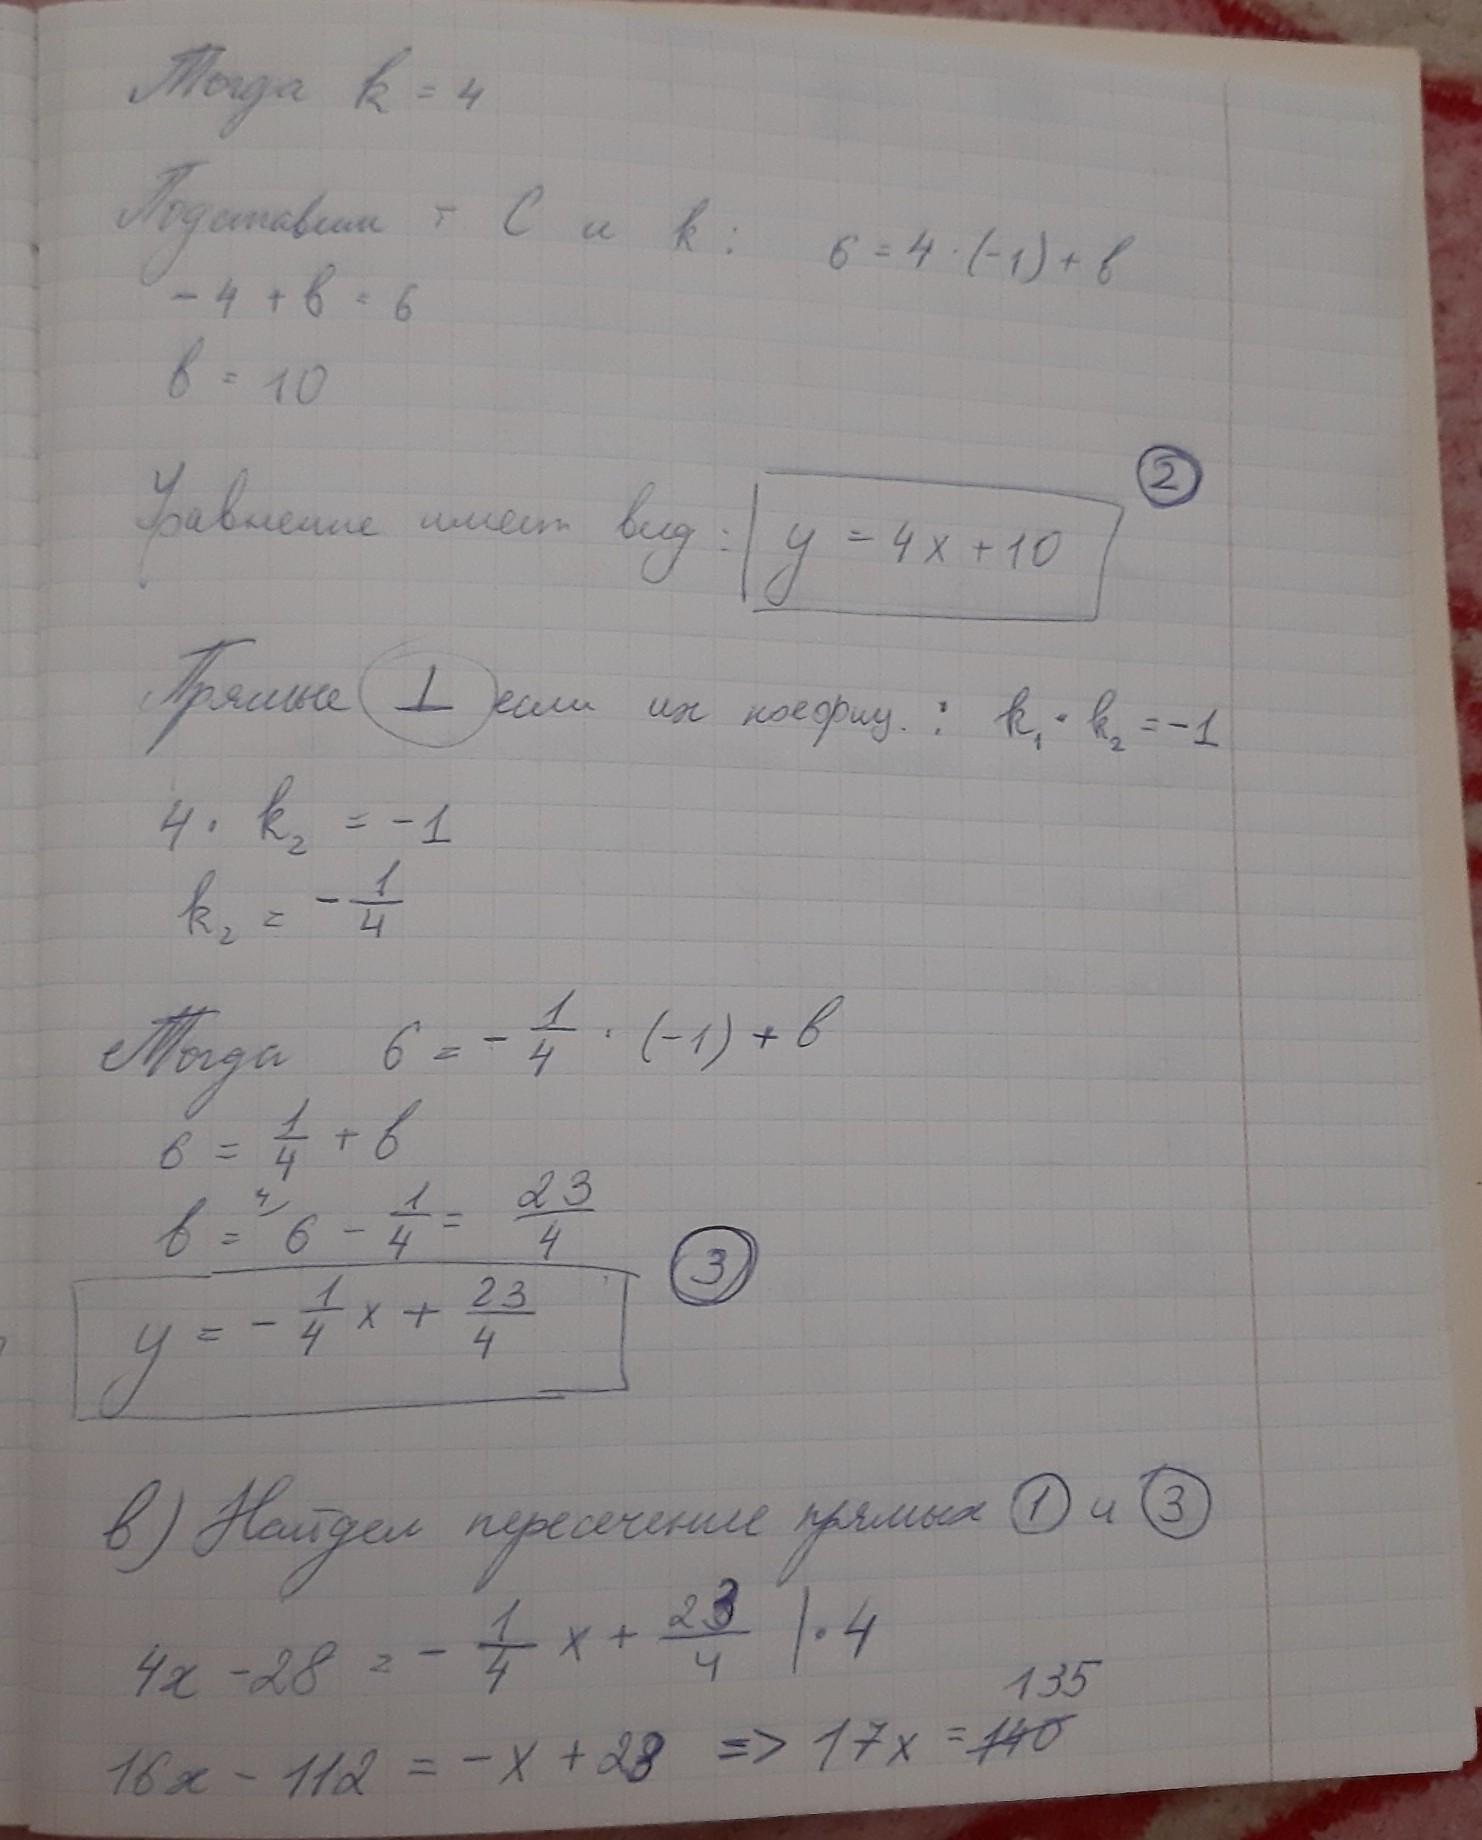 Тогда k = 4
Подставим т C и k: 6 = 4 · (-1) + b
-4 + b = 6
b = 10
②
Уравнение имеет вид: y = 4x + 10
Прямые ⊥ если их коэфиц.: k₁ · k₂ = -1
4 · k₂ = -1
k₂ = - 1/4
Тогда 6 = - 1/4 · (-1) + b
6 = 1/4 + b
b = ⁴⁄ 6 - 1/4 = 23/4
③
y = - 1/4 x + 23/4
в) Найдем пересечение прямых ① и ③
4x - 28 = - 1/4 x + 23/4 | · 4
135
16x - 112 = -x + 23 => 17x = 140